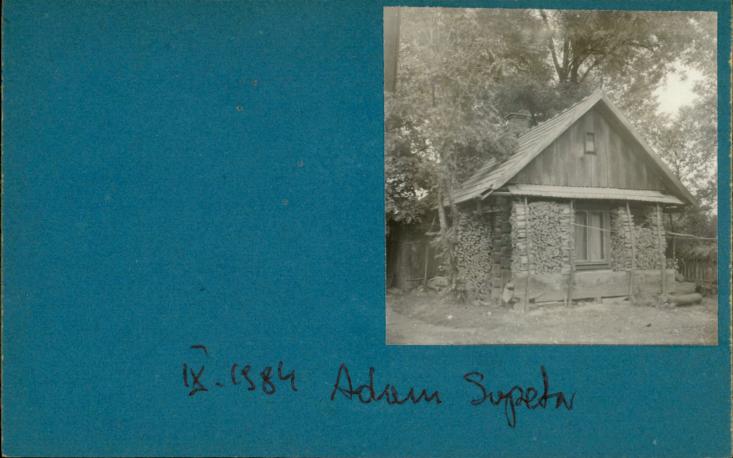 IX. 1984 Adam Supeta